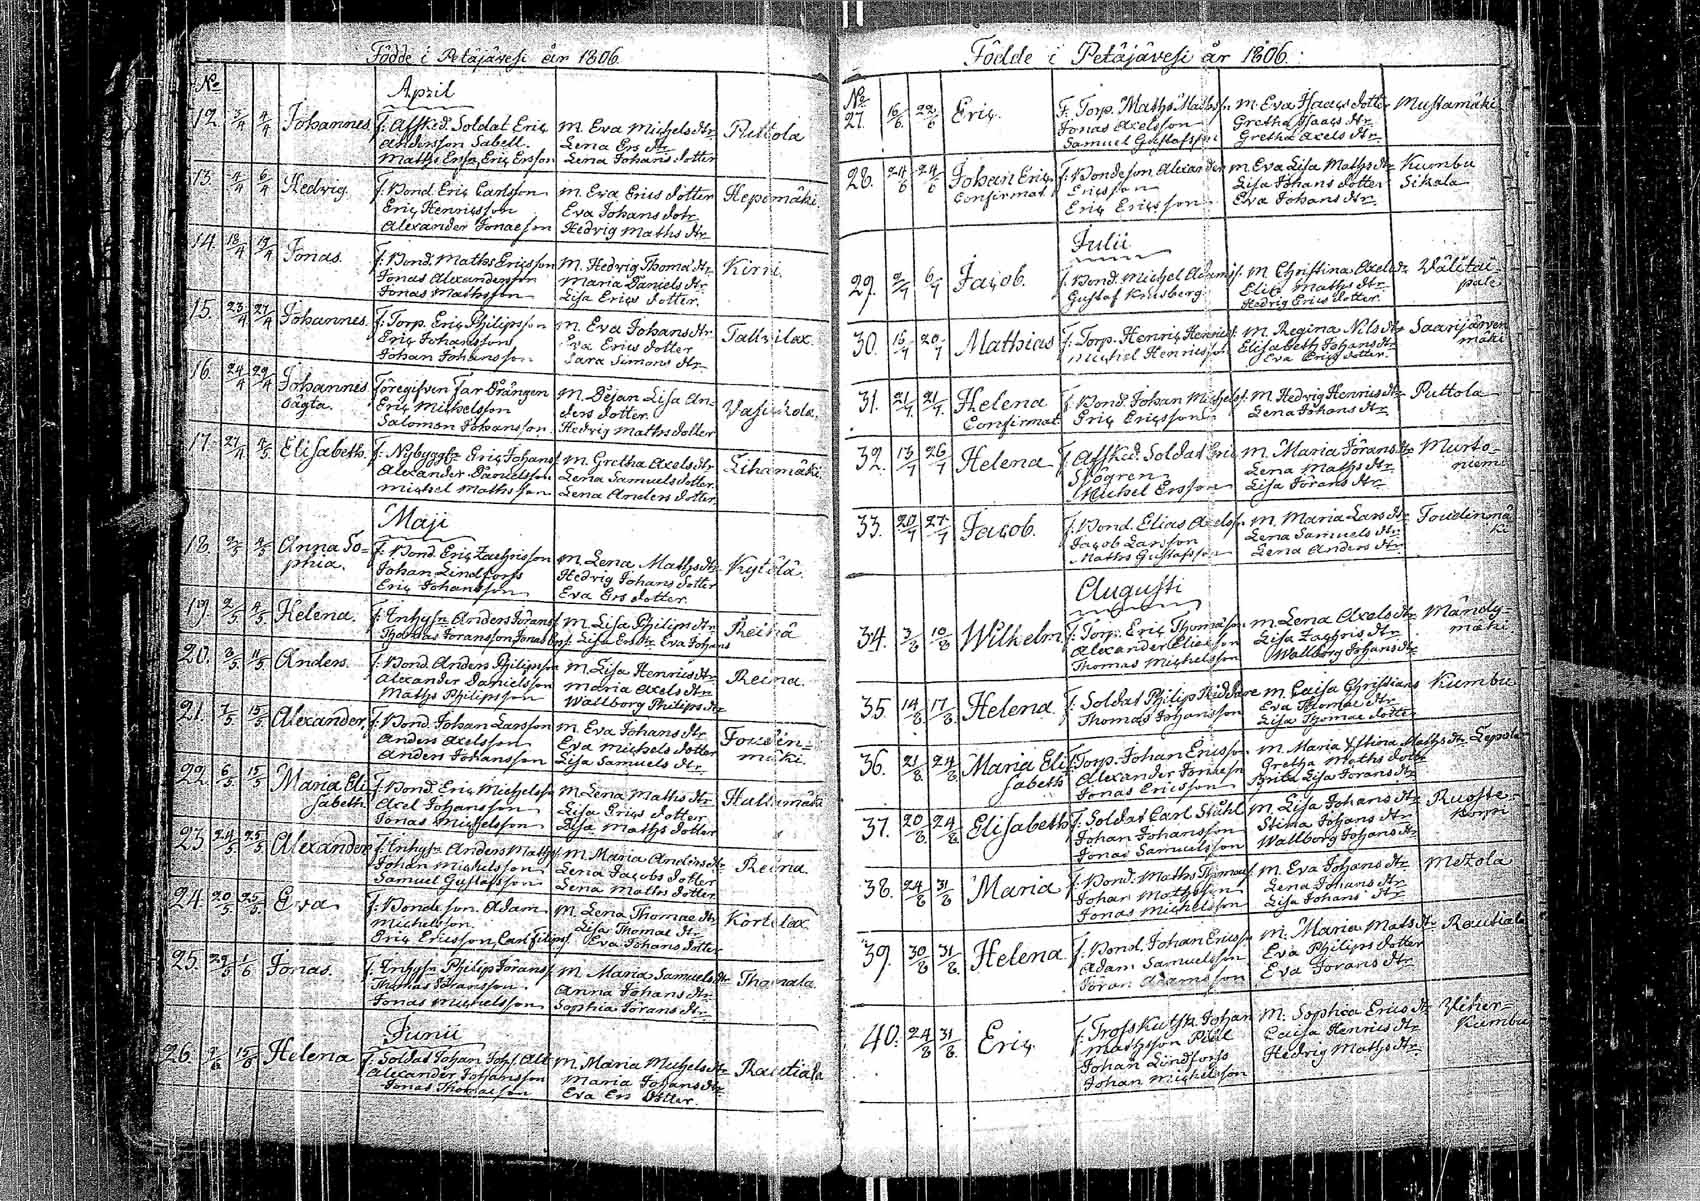 Födde i Petäjävesi år 1806.
No
April
12. 3/4 4/4 Johannes f: Afsked. Soldat Eric m. Eva Michels dtr Puttola
Andersson Sabell. Lena Ers dtr
Maths Ersson, Eric Ersson Lena Johans dotter
13. 4/4 6/4 Hedvig. f: Bond. Eric Carlsson m. Eva Erics dotter Hepomäki
Eric Henricsson Eva Johans dotr
Alexander Jonaesson Hedvig Maths dtr
14. 18/4 19/4 Jonas. f: Bond. Maths Ericsson m. Hedvig Thomae dtr Kirri.
Jonas Alexandersson Maria Daniels dtr
Jonas Mathsson Lisa Erics dotter.
15. 23/4 27/4 Johannes. f: Torp. Eric Philipsson m. Eva Johans dtr
Eric Johansson Eva Erics dotter
Johan Johansson Sara Simons dtr
16. 24/4 29/4 Johannes Föregifven Far Drängen m. Pejan Lisa An-
oägta. Eric Michelsson ders dotter.
Salomon Johansson. Hedvig Maths dotter
17. 27/4 4/5 Elisabeth. f: Nybygg. Eric Johans m. Gretha Axels dtr
Alexander Danielsson Lena Samuels dotter.
Michel Mathsson Lena Anders dotter
Maji
18. 2/5 4/5 Anna So- f: Bond. Eric Zachrisson m. Lena Maths dtr Kytölä.
phia. Johan Lindforss Hedvig Johans dotter
Eric Johansson Eva Ers dotter.
19. 2/5 4/5 Helena. f: Inhys Anders Jörans m. Lisa Philips dtr
Thomas Joransson, Jonas Lisa Ers dtr Eva Johans
20. 3/5 11/5 Anders. f: Bond Anders Philipsson m. Lisa Henrics dtr Reina.
Alexander Danielsson Maria Axels dtr
Maths Philipsson Wallborg Philips dtr
21. 7/5 15/5 Alexander, f: Bond Johan Larsson m. Eva Johans dtr Toudin=
Anders Axelsson Eva Michels dotter mäki.
Anders Johansson Lisa Samuels dtr.
22. 6/5 15/5 Maria Eli f: Bond. Eric Michelsson m. Lena Maths dtr
sabeth. Axel Johansson Lisa Erics dotter
Jonas Michelsson Lisa Maths dotter
23. 24/5 25/5 Alexander f: Inhys Anders Maths m. Maria Anders dtr Reina.
Johan Michelsson Lena Jacobs dotter
Samuel Gustafsson Lena Maths dotter
24. 20/5 25/5 Eva f: Bondeson. Adam m. Lena Thomae dtr
Michelsson. Lisa Thomae dtr.
Eric Ericsson, Carl Filips Eva Johans dotter
25. 29/5 1/6 Jonas. f: Inhys Philip Jörans m. Maria Samuels dtr
Thomas Joransson. Anna Johans dtr
Jonas Michelsson Sophia Jörans dtr.
Junii
26. Helena f: Soldat Johan Joh. Alt m. Maria Michels dtr Rautiala
Alexander Johansson Maria Johans dtr
Jonas Thomaeson Eva Ers dotter.
Födde i Petäjävesi år 1806.
No
27. 16/6 22/6 Eric. F. Torp. Maths Mathss m. Eva Isaacs dotter Mustamäki
Jonas Axelsson Gretha Isaacs dtr
Samuel Gustafsson Gretha Axels dtr
28. 24/6 24/6 Johan Eric f: Bondeson Alexander m. Eva Lisa Maths dtr Kumbu
Confirmat. Ericsson Lisa Johans dotter Sikala
Eric Ericsson Eva Johans dtr.
Julii
29. 2/7 6/7 Jacob. f: Bond. Michel Adams m. Christina Axels dtr
Gustaf Krusberg. Elis Maths dtr
Hedrig Erics dotter.
30. 15/7 20/7 Mathias f: Torp. Henric Henrics m. Regina Nils dtr Saarijärven
Michel Henricsson Elisabeth Johans dtr mäki
Eva Erics dotter.
31. 21/7 21/7 Helena f. Bond. Johan Michels m. Hedvig Henrics dtr Puttola
Confirmat. Eric Ericsson Lena Johans dtr
32. 15/7 26/7 Helena f Afsked. Soldat Eric m. Maria Jörans dtr Murto-
Sjögren Lena Maths dtr niemi
Michel Ersson Lisa Jörans dtr
33. 20/7 27/7 Jacob. f. Bond. Elias Axelss m. Maria Lars dtr Toudinmä
Jacob Larsson Lena Samuels dtr ki
Maths Gustafsson Lena Anders dtr
Augusti
34. 3/8 10/8 Wilhelm f: Torp. Eric Thomasson m. Lena Axels dtr Mändy-
Alexander Eliaesson Lisa Zachris dtr mäki
Thomas Michelsson Wallborg Johans dtr
35. 14/8 17/8 Helena. f: Soldat Philip Riddare m. Caisa Christians Kumbu
Thomas Johansson Eva Thomae dtr
Lisa Thomae dotter
36. 21/8 24/8 Maria Eli Torp. Johan Ericsson m. Maria Xstina Maths dtr
sabeth Alexander Jonaesn Gretha Maths dotter
Jonas Ericsson Brita Lisa Jorans dtr
37. 20/8 24/8 Elisabeth f: Soldat Carl Ståhl m. Lisa Johans dtr
Johan Johansson Stina Johans dtr
Jonas Samuelsson Wallborg Johans dtr
38. 24/8 31/8 Maria f: Bond. Maths Thomas m. Eva Johans dtr Metola
Johan Mathsson Lena Johans dtr
Jonas Michelsson Lisa Johans dtr
39. 30/8 31/8 Helena f: Bond. Johan Ericss m. Maria Mats dtr Rautiala
Adam Samuelsson Eva Philips dotter
Jöran Adamsson Eva Jorans dtr.
40. 24/8 31/8 Eric f: Trosskutsk Johan m. Sophia Erics dtr
Mathsson Caisa Henrics dtr Kumbu
Johan Lindforss Hedvig Maths dtr
Johan Michelsson